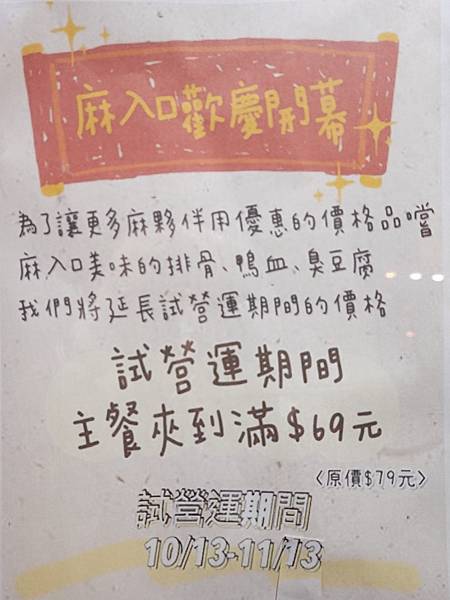 麻入口歡慶開幕
為了讓更多麻夥伴用優惠的價格品嚐
麻入口美味的排骨、鴨血、臭豆腐
我們將延長試營運期間的價格
試營運期間
主餐夾到滿$69元
〈原價$79元〉
試營運期間
10/13-11/13